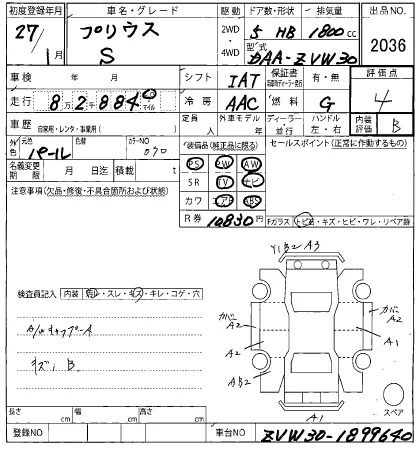 初度登録年月 車名・グレード 駆動 ドア数・形状 排気量 出品NO
27/1月 プリウス S 2WD・4WD 5 HB 1800cc 2036
型式 DAA-ZVW30
車検 年 月 シフト IAT 保証書 有・無 評価点
走行 8万2千884 0 km マイル 冷房 AAC 燃料 G 4
車歴 自家用・レンタ・事業用( ) 定員 人 外車モデル 年 ディーラー・並行 ハンドル 左・右 内装評価 B
外色 元色 パール 替色 カラーNO 070 装備品(純正品に限る) セールスポイント(正常に動作するもの)
名義変更期限 月 日迄 積載 t PS PW AW
注意事項(欠品・修復・不具合箇所および状態) SR TV ナビ
カワ エアB ABS
R券 10830円 Fガラス トビ石・キズ・ヒビ・ワレ・リペア跡
Y1B2 A3
検査員記入 内装 汚レ・スレ・キズ・キレ・コゲ・穴
カバー A2 カバー A2
A2 A1
キズ、B
スペア
A1
長さ cm 幅 cm 高さ cm
登録NO 車台NO ZVW30-1899640